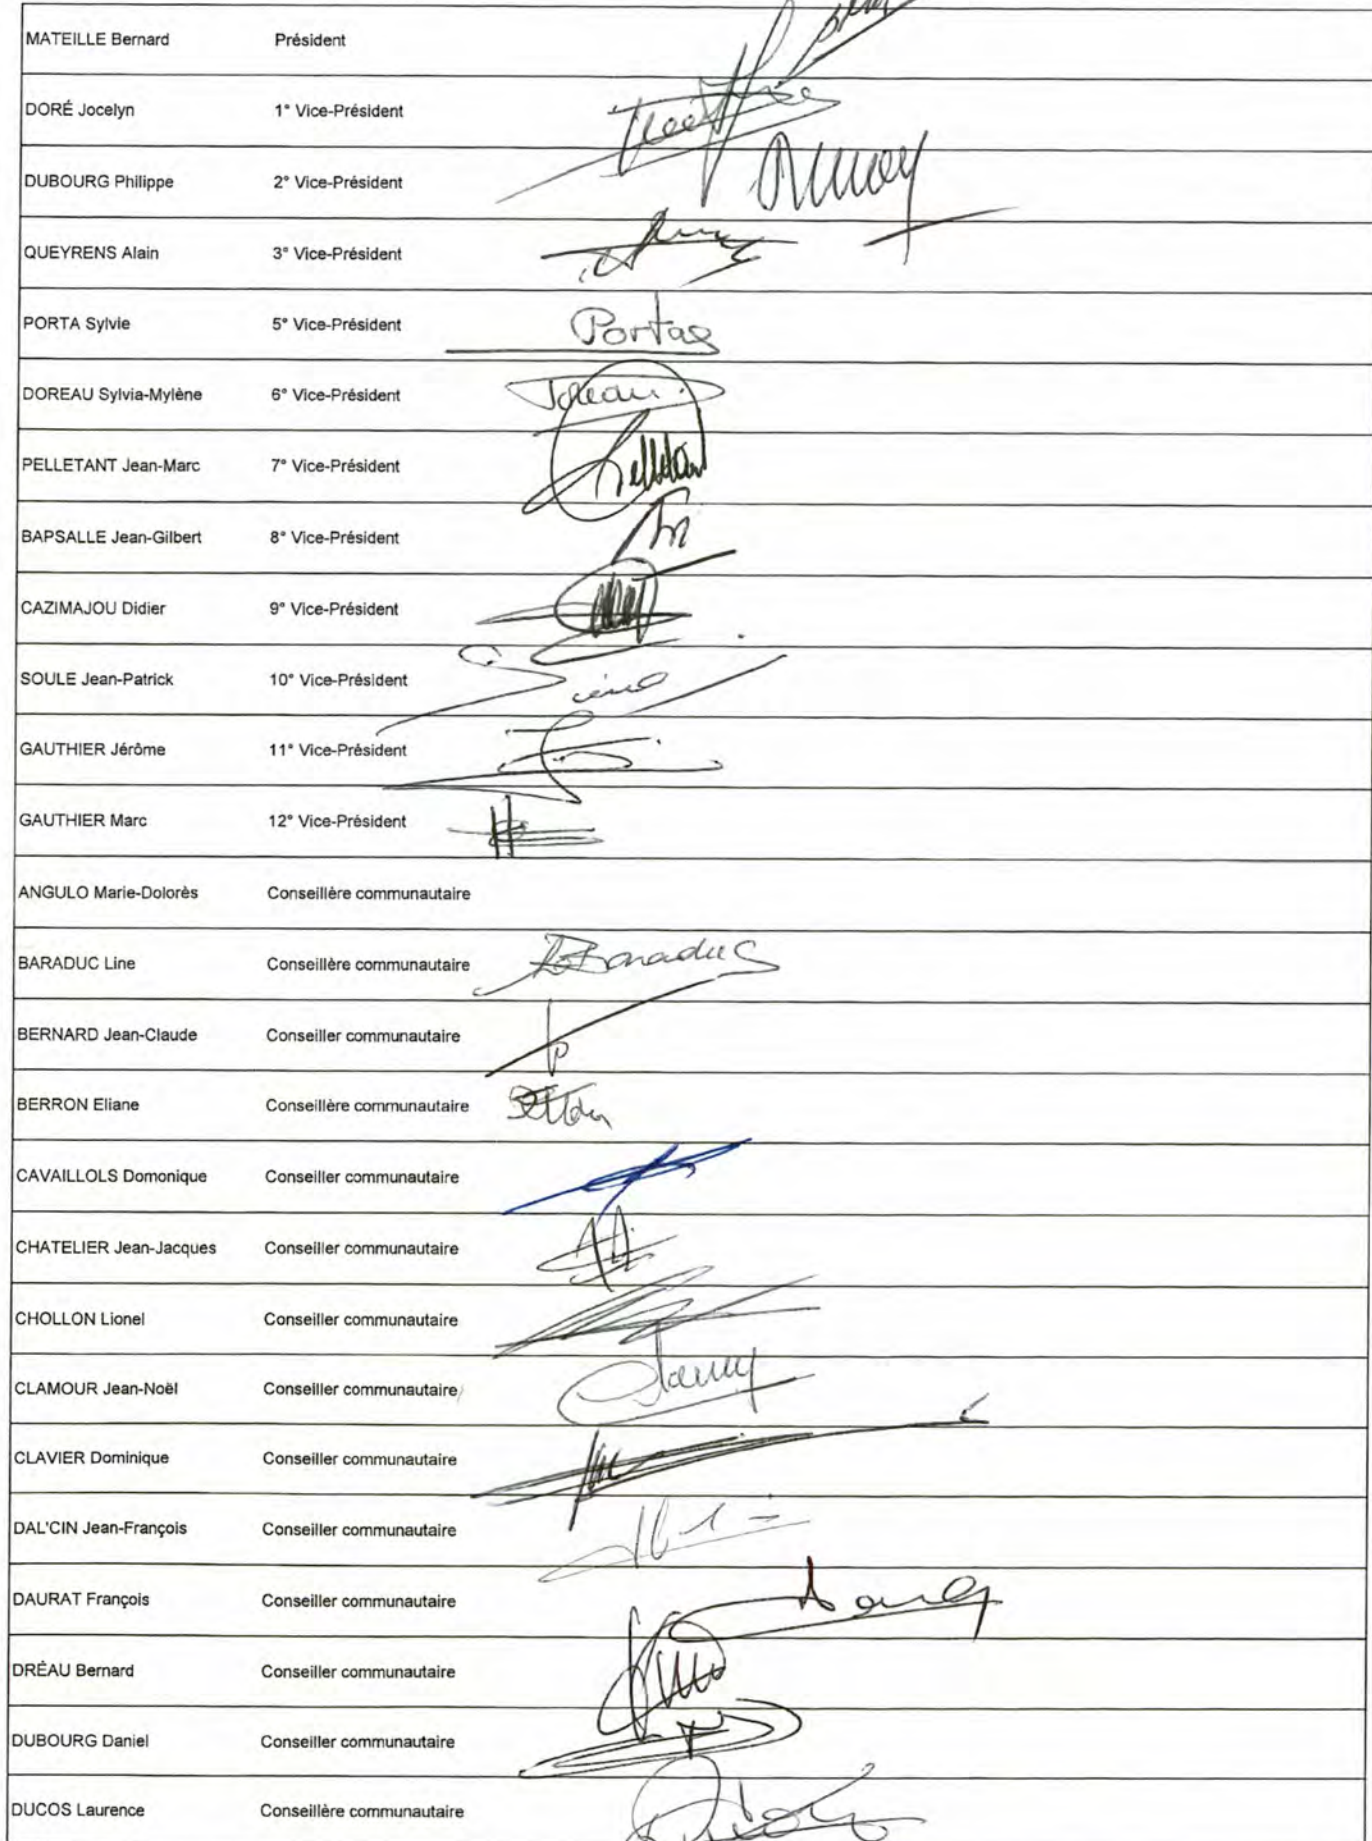 MATEILLE Bernard Président
DORÉ Jocelyn 1° Vice-Président
DUBOURG Philippe 2° Vice-Président
QUEYRENS Alain 3° Vice-Président
PORTA Sylvie 5° Vice-Président Portas
DOREAU Sylvia-Mylène 6° Vice-Président
PELLETANT Jean-Marc 7° Vice-Président
BAPSALLE Jean-Gilbert 8° Vice-Président
CAZIMAJOU Didier 9° Vice-Président
SOULE Jean-Patrick 10° Vice-Président
GAUTHIER Jérôme 11° Vice-Président
GAUTHIER Marc 12° Vice-Président
ANGULO Marie-Dolorès Conseillère communautaire
BARADUC Line Conseillère communautaire Baraduc
BERNARD Jean-Claude Conseiller communautaire
BERRON Eliane Conseillère communautaire
CAVAILLOLS Domonique Conseiller communautaire
CHATELIER Jean-Jacques Conseiller communautaire
CHOLLON Lionel Conseiller communautaire
CLAMOUR Jean-Noël Conseiller communautaire
CLAVIER Dominique Conseiller communautaire
DAL'CIN Jean-François Conseiller communautaire
DAURAT François Conseiller communautaire
DRÉAU Bernard Conseiller communautaire
DUBOURG Daniel Conseiller communautaire
DUCOS Laurence Conseillère communautaire